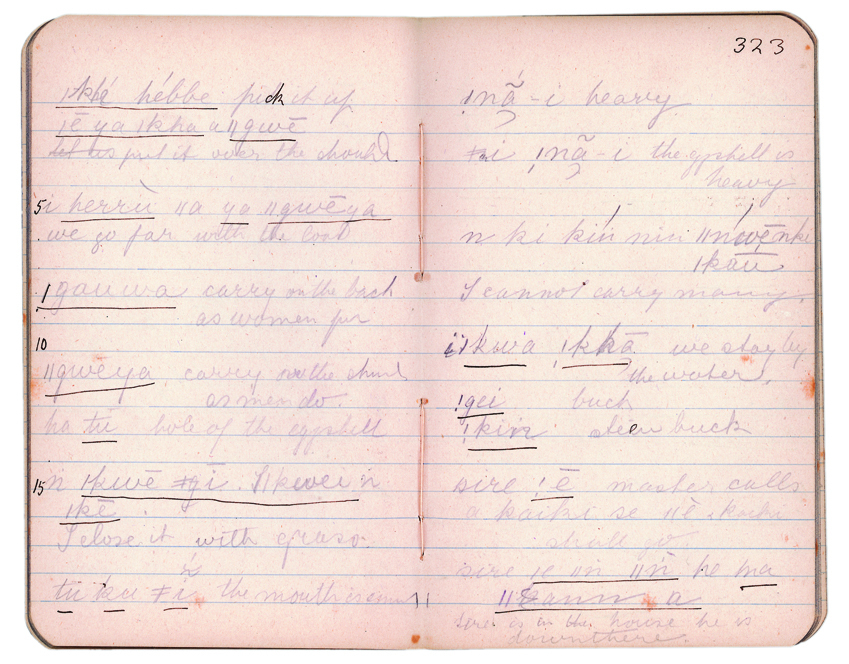 ǀkhá hébbe pick it up
ǀē ya ǀkha a ǁgwē
let us put it over the should
5 i herrù ǁa ya ǁgwēya
we go far with the
ǀgauwa carry on the back
as women
10
ǁgwēya carry on the
as men do.
ha tu hole of the eggshell
15 n ǀkwē ǂgī. n
ǀkē.
I close it with grass.
tu ka ǂí the mouth is
323
ǃnã́-i heavy
ǂni ǃnã-i the eggshell is
heavy
n ki kín nin ǁńwē nke
ǀkau
I cannot carry many.
ǀkwa ǃkhā we stay by
the water.
ǃgei buck
ǃkin steenbuck
sire ǃē master calls
a kaiki se ǁē. kaiki
shall go
sire ǀe ǁn ǁń he ma
a
sire is in the house he is
down there.